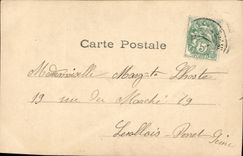 Carte Postale
5
Mademoiselle Marg-te Lhoste
19 rue du Marché 19
Levallois-Perret
Seine